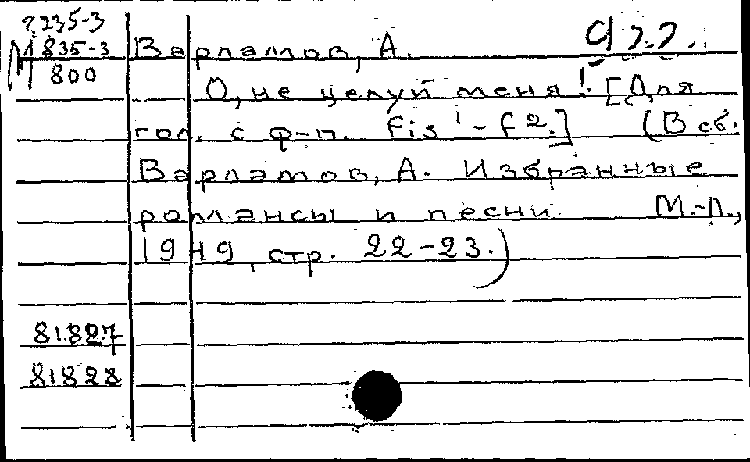 2235-3
М 835-3
800
Варламов, А.
О, не целуй меня! [Для
гол. с ф-п. fis¹-f².] (В сб.
Варламов, А. Избранные
романсы и песни. М.-Л.,
1949, стр. 22-23.)
81827
81828